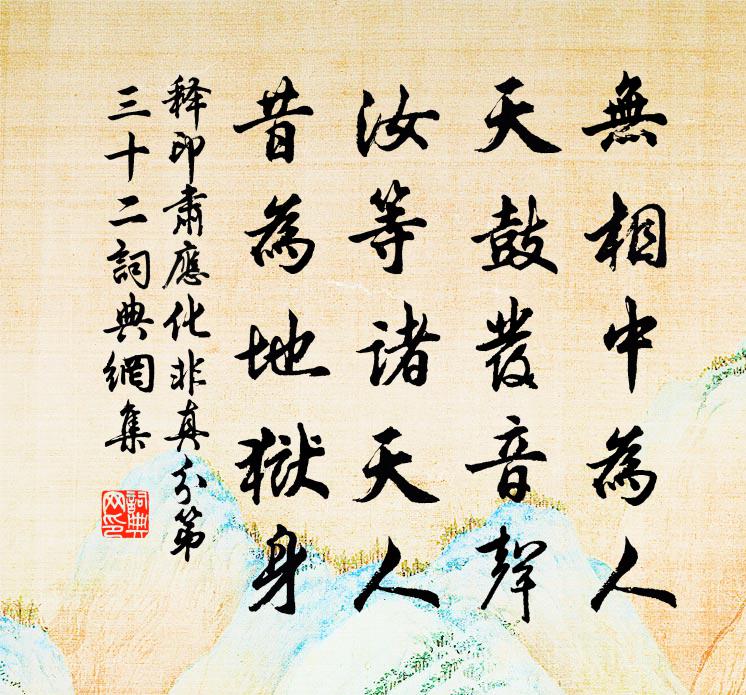 無相中為人
天鼓發音聲
汝等諸天人
昔為地獄身
释印肅應化非真分第
三十二詞典網集
詞典网印